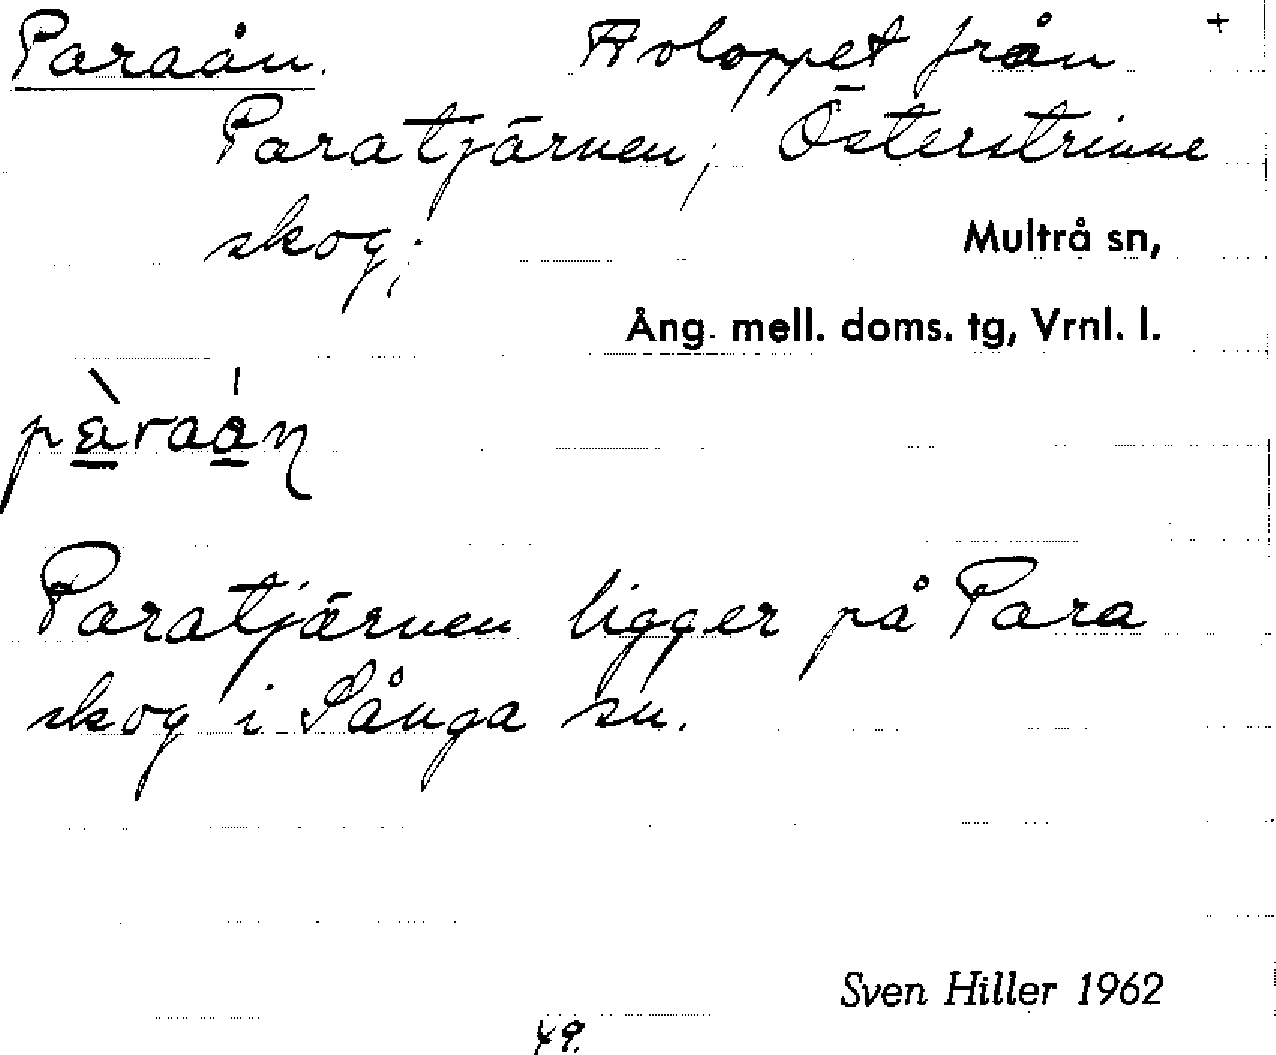 Paraån. Avloppet från +
Paratjärnen, Österstrinne
skog;
Multrå sn,
Ång. mell. doms. tg, Vrnl. l.
pàraáŋ
Paratjärnen ligger på Para
skog i Sånga sn.
Sven Hiller 1962
49.